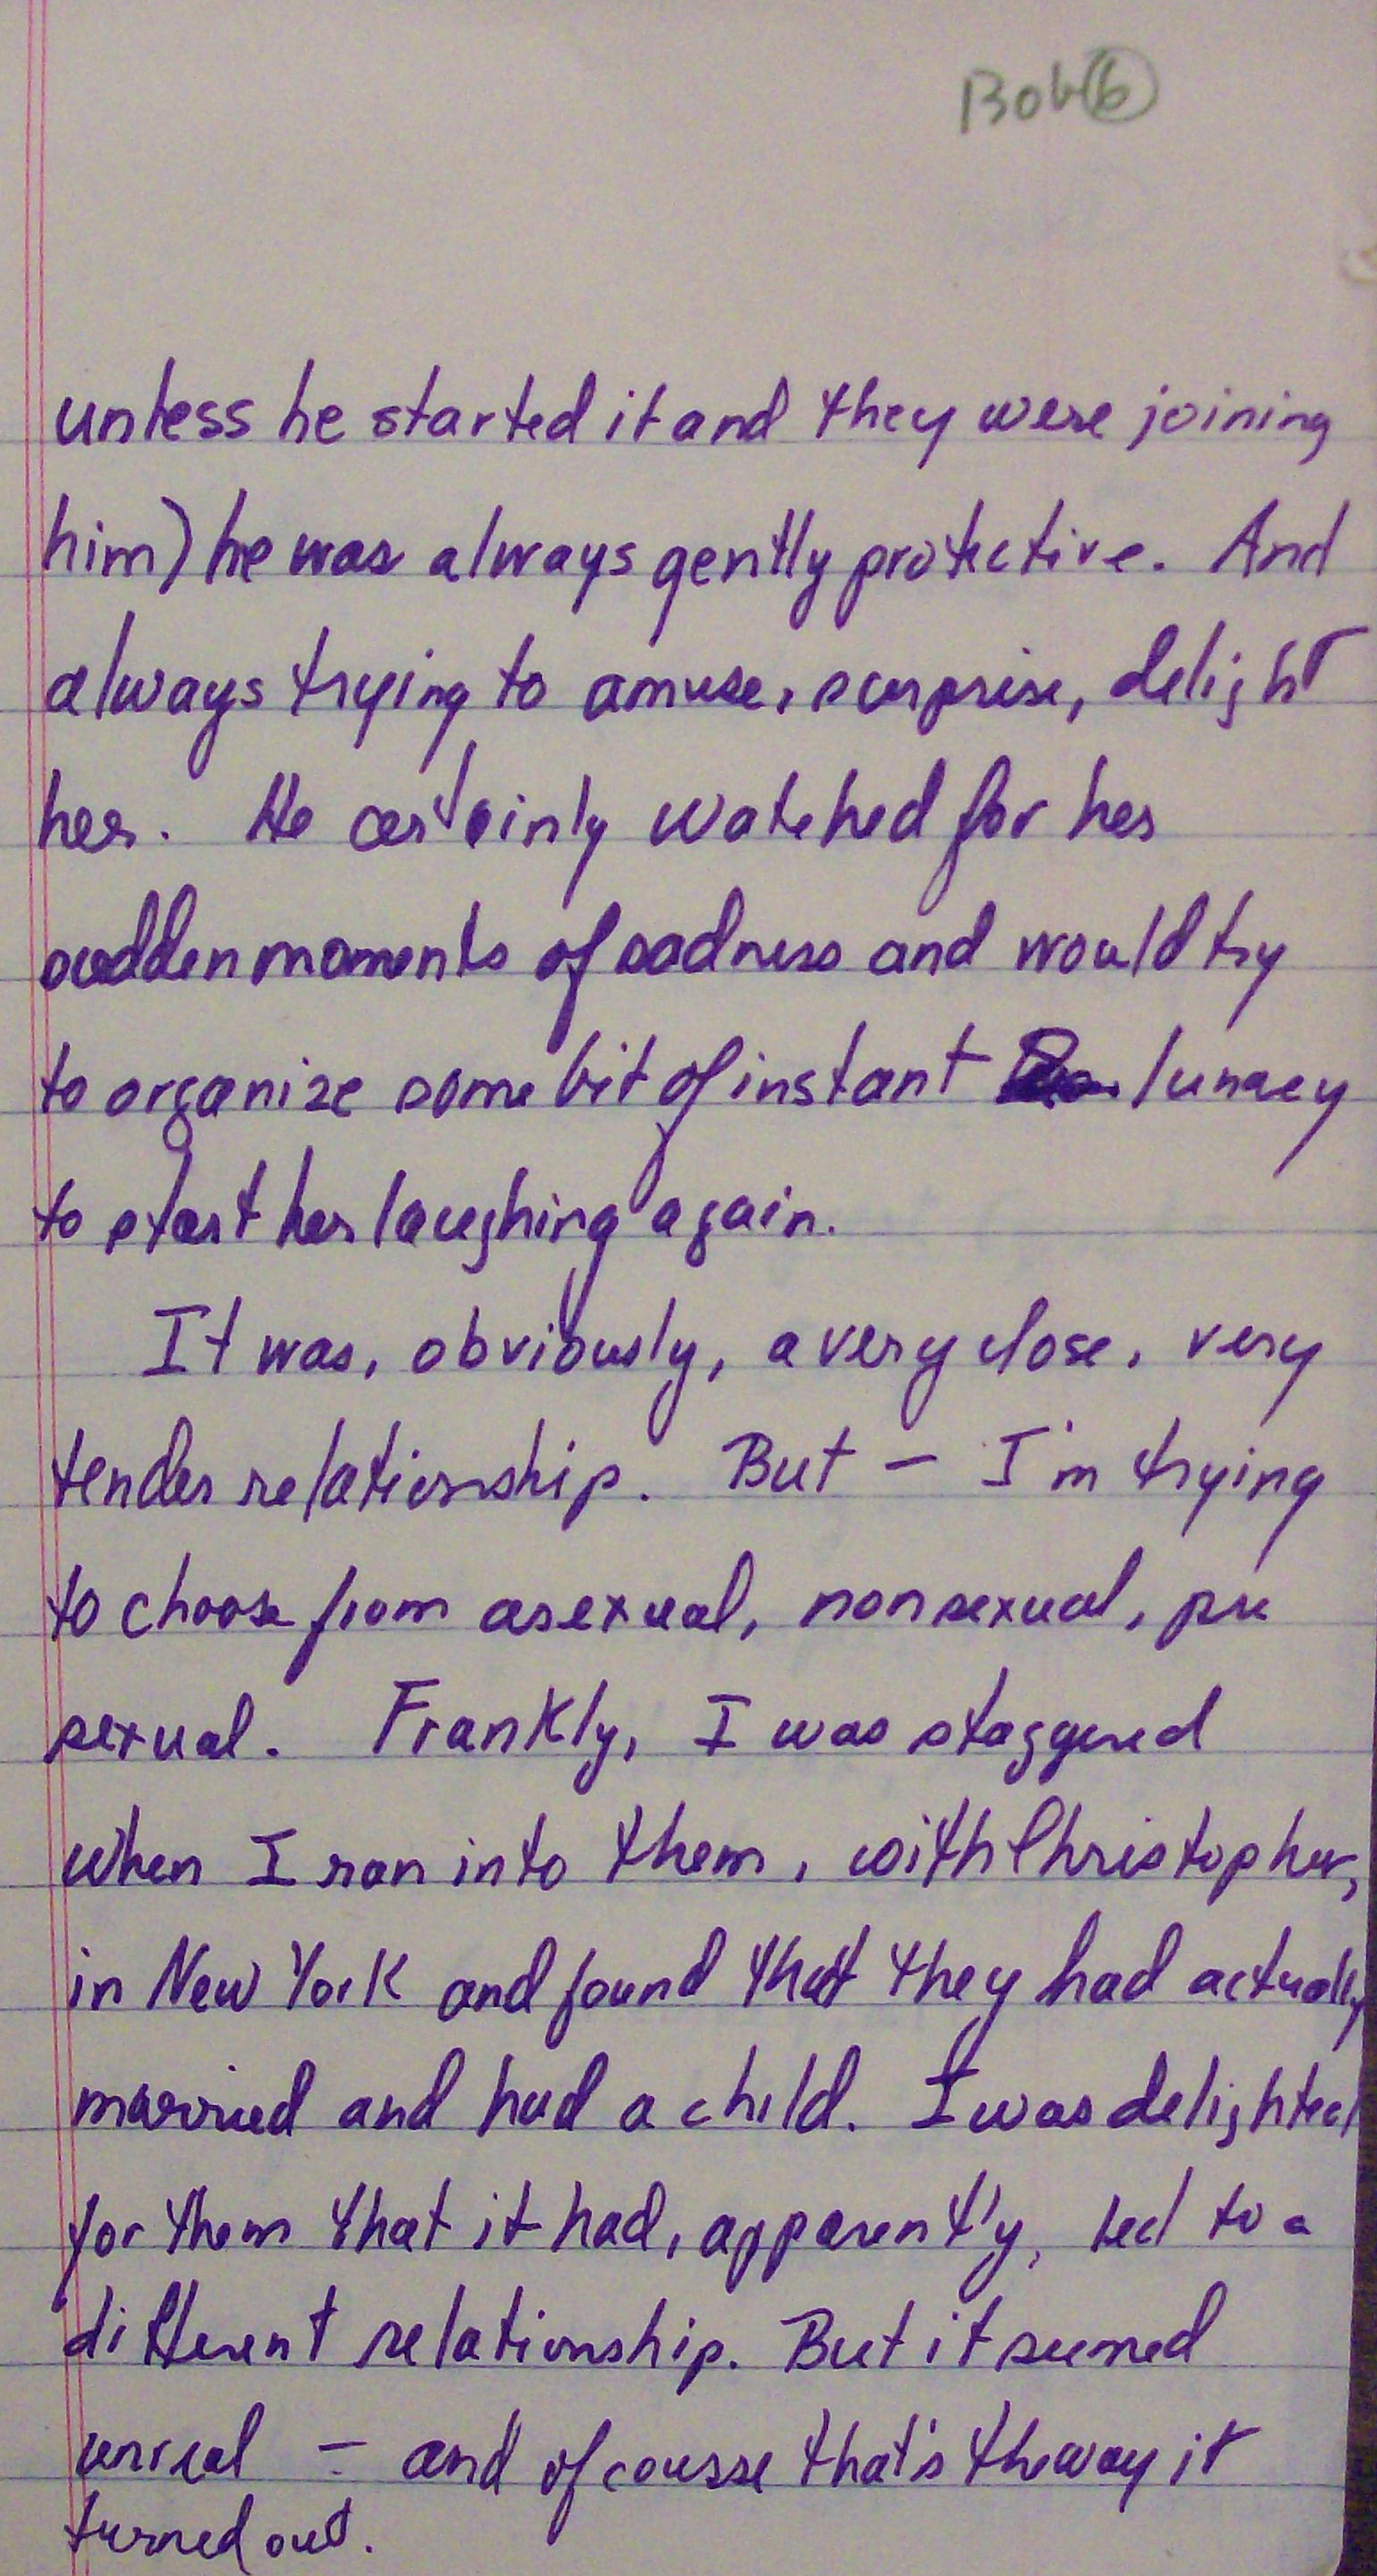 Bob 6
unless he started it and they were joining
him) he was always gently protective. And
always trying to amuse, surprise, delight
her. He certainly watched for her
sudden moments of sadness and would try
to organize some bit of instant lunacy
to start her laughing again.
It was, obviously, a very close, very
tender relationship. But — I'm trying
to choose from asexual, nonsexual, pre
sexual. Frankly, I was staggered
when I ran into them, with Christopher,
in New York and found that they had actually
married and had a child. I was delighted
for them that it had, apparently, led to a
different relationship. But it seemed
unreal — and of course that's the way it
turned out.